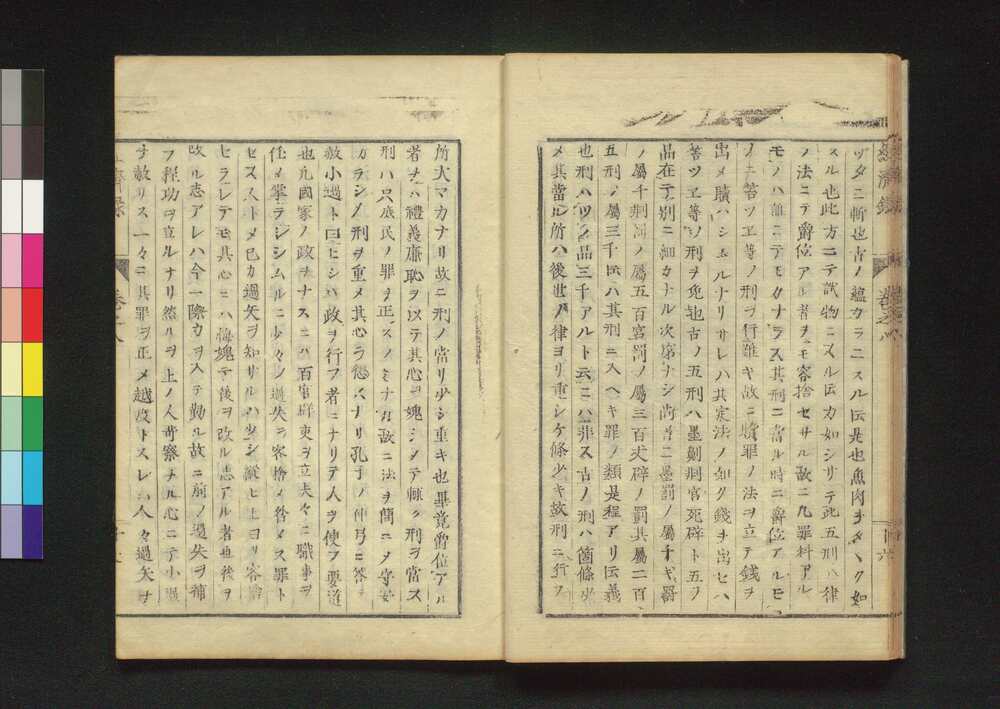 ヅタニ斬也古ノ醞カラニスル𪜈是也魚肉ヲタヽク如
スル也此方ニテ試物ニスル𪜈カ如シリテ此五刑ハ律
ノ法ニテ爵位アル者ヲモ容捨セサル故ニ凡罪科アル
モノハ誰ニテモタナラス其刑ニ當ル時ニ爵位アルモ
ノニ答ツヱ等ノ刑ヲ行難キ故ニ贖罪ノ法ヲ立テ錢ヲ
出メ贖ハシムルナリサレハ其定法ノ如ク錢ヲ出セハ
笞ツヱ等ノ刑ヲ免也古ノ五刑ハ墨劓剕宮死辟ト五ヲ
品在テ別ニ細カナル次第ナシ尚書ニ墨罰ノ屬千劓罰
ノ屬千剕罰ノ屬五百宮罰ノ屬三百大辟ノ罰其屬二百
五刑ノ屬三千𪜈ハ其刑ニ入ヘキ罪ノ類是程アリ𪜈義
也刑ハツノ品三千アルト云ニハ非ス古ノ刑ハ箇條少
メ其當ル所ハ後世ノ律ヨリ重シケ條少キ故刑ニ行フ
所大マカナリ故ニ刑ノ當リ少シ重キ也畢竟爵位アル
者ヲハ禮義廉恥ヲ以テ其心ヲ媿シメテ輙ク刑ヲ當ス
刑ハ只底民ノ罪ヲ正スノミナリ故ニ法ヲ簡ニメ守安
カラシメ刑ヲ重メ其心ヲ懲スナリ孔子ノ仲弓ニ答ヲ
赦小過ト曰ヒシハ政ヲ行フ者ニナリテ人ヲ使フ要道
也凡國家ノ政ヲナスニハ百官群吏ヲ立夫々ニ職事ヲ
任メ掌ラシシムルニ少々ノ過失ヲ容捨メ咎メス罪ト
セス人トメ已カ過失ヲ知サルハ少シ縱ヒ上ヨリ容捨
セラレテモ其心ニハ悔媿テ後ヲ改ル志アル者也後ヲ
改ル志アレハ今一際力ヲ入テ勤ル故ニ前ノ過失ヲ補
フ程功ヲ立ルナリ然ルヲ上ノ人苛察ナル心ニテ小過
ヲ赦サス一々ニ其罪ヲ正メ越度トスレハ人々過失ヲ
經濟錄 卷之八